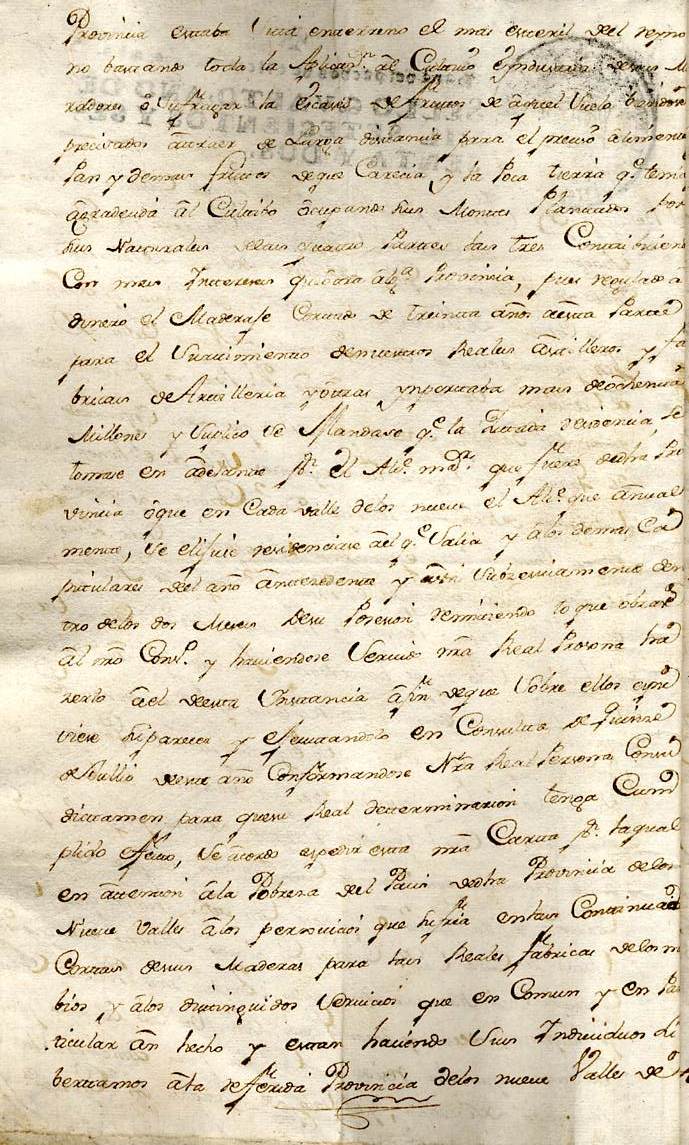 Provincia estaba situa enterreno el mas esteril del reyno
no bastando toda la Aplicaon. al Cultivo è yndustria desus Mo
radores â sufragar la escases defrutos de aquel suelo biendose
precisados âtraer de Larga distancia para el preciso alimento
Pan y demas frutos deque Carecia, y la Poca tierra qe. tenia
âgradeuda âl Cultibo ôcupando sus Montes Plantados por
sus Naturales delas quatro Partes las tres Contribuien
Con mas Intereses qe ôtra âlga. Provincia, pues regulado â
dinero el Maderaje Cortado de treinta años âesta Parte
para el Surtimiento denuestros Reales âstilleros y fa
bricas deArtilleria yôtras ynportaba mas deôchenta
Millones y suplico se Mandase qe. la zitada residencia, se
tomase en âdelante pr. el Alce. mor. que fuere dedha Pro
vincia ôque en Cada valle delos nueve el Alce. que ânual
mente, se elijiese residenciase âel qe. salia y âlos demas Ca
pitulares del año ântezedente y âsi subzesivamente den
tro delos dos Meses desu Posesion remitiendo lo que obrare
âl nro Conso. y haviendose servido nra Real Persona Re
zerlo âel deesta Instancia âfin deque sobre ellos espu
siese su parecer y ejecutandolo en Consulta de quinze
deJullio deeste año Conformandose Nra Real Persona Consu
dictamen para quesu Real determinazion tenga Cum
plido efecto, se âcordo espedir esta nra Carta pr. laqual
en âttencion âla Pobreza del Pais dedha Provincia delos
Nueve valles âlos perjuicios que sufria enlas Continuas
Cortas desus Maderas para las Reales fabricas delos na
bios, y âlos distinguidos servicios que en Comun y en Par
ticular ân hecho y estan haciendo sus Individuos Li
bertamos âla referida Provincia delos nueve Valles de